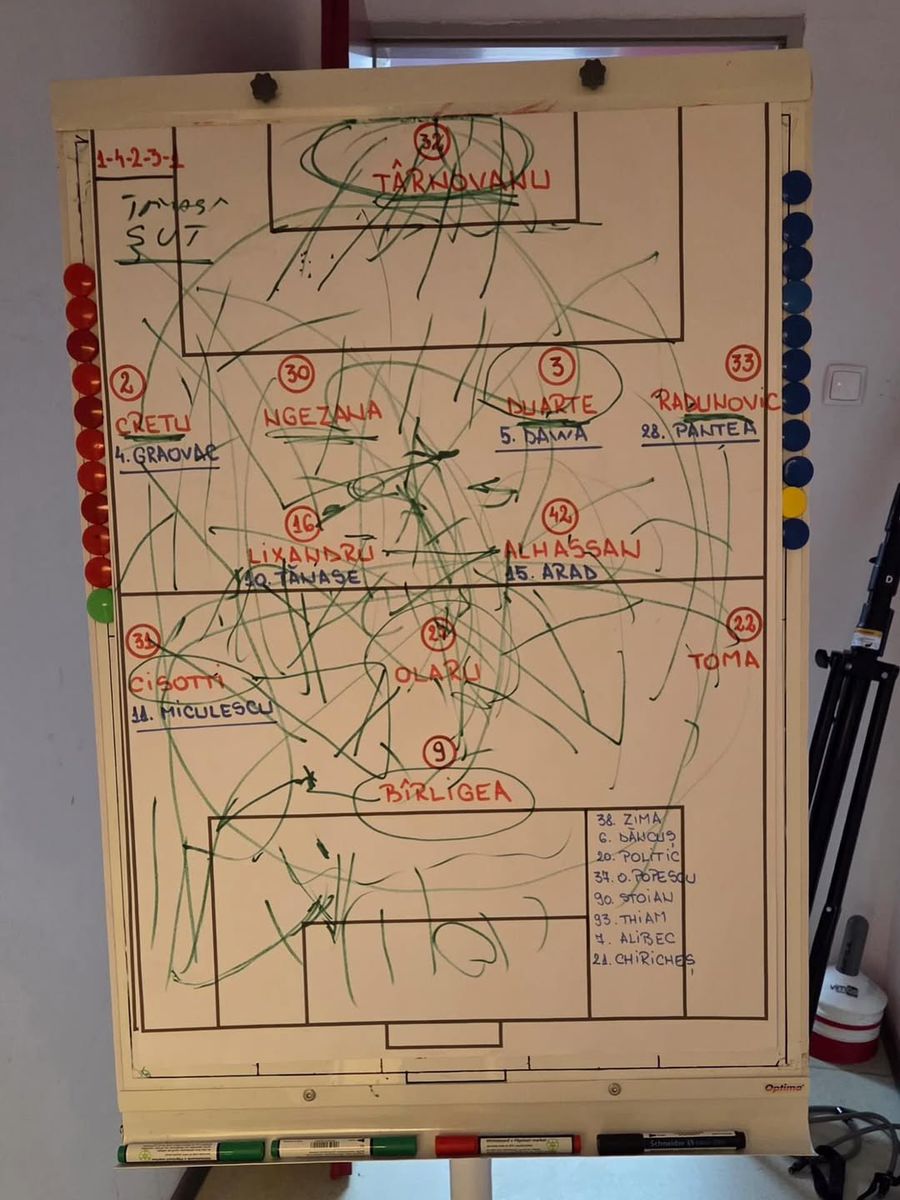 1-4-2-3-1
32
TÂRNOVANU
ȘUT
2
CRETU
4. GRAOVAC
30
NGEZANA
3
DUARTE
5. DAWA
33
RADUNOVIC
28. PANTEA
16
LIXANDRU
10. TĂNASE
42
ALHASSAN
15. ARAD
31
CISOTTI
11. MICULESCU
27
OLARU
22
TOMA
9
BÎRLIGEA
38. ZIMA
6. DĂNCUȘ
20. POLITIC
37. O. POPESCU
90. STOIAN
93. THIAM
7. ALIBEC
21. CHIRICHEȘ
Optima
Schneider
D